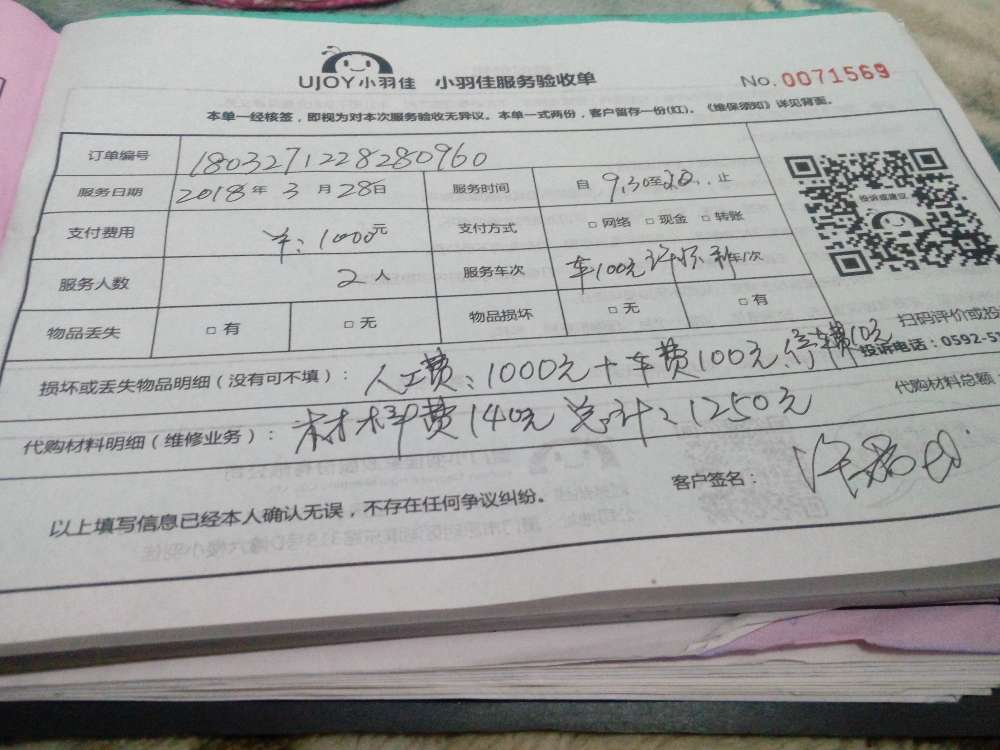 UJOY小羽佳 小羽佳服务验收单 No.0071569
本单一经核签，即视为对本次服务验收无异议。本单一式两份，客户留存一份(红)。《维保须知》详见背面。
订单编号 1803271228280960
服务日期 2018年3月28日 服务时间 自9:30至 止
支付费用 1000元 支付方式 □网络 □现金 □转账
服务人数 2人 服务车次 车100元 车/次
物品丢失 □有 □无 物品损坏 □无 □有
投诉或建议
扫码评价或投
投诉电话：0592-5
损坏或丢失物品明细（没有可不填）：人工费：1000元+车费100元.停车费10元
代购材料明细（维修业务）：材料费140元总计：1250元
代购材料总额
客户签名：
以上填写信息已经本人确认无误，不存在任何争议纠纷。